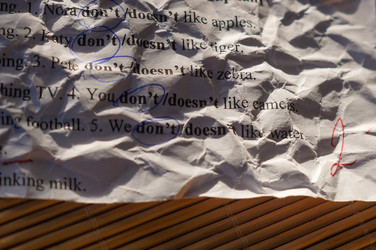 ng. 1. Nora don't /doesn't like apples.
ng. 2. Katy don't /doesn't like tiger.
ing. 3. Pete don't /doesn't like zebra.
hing TV. 4. You don't /doesn't like camels.
ing football. 5. We don't /doesn't like water.
2
inking milk.